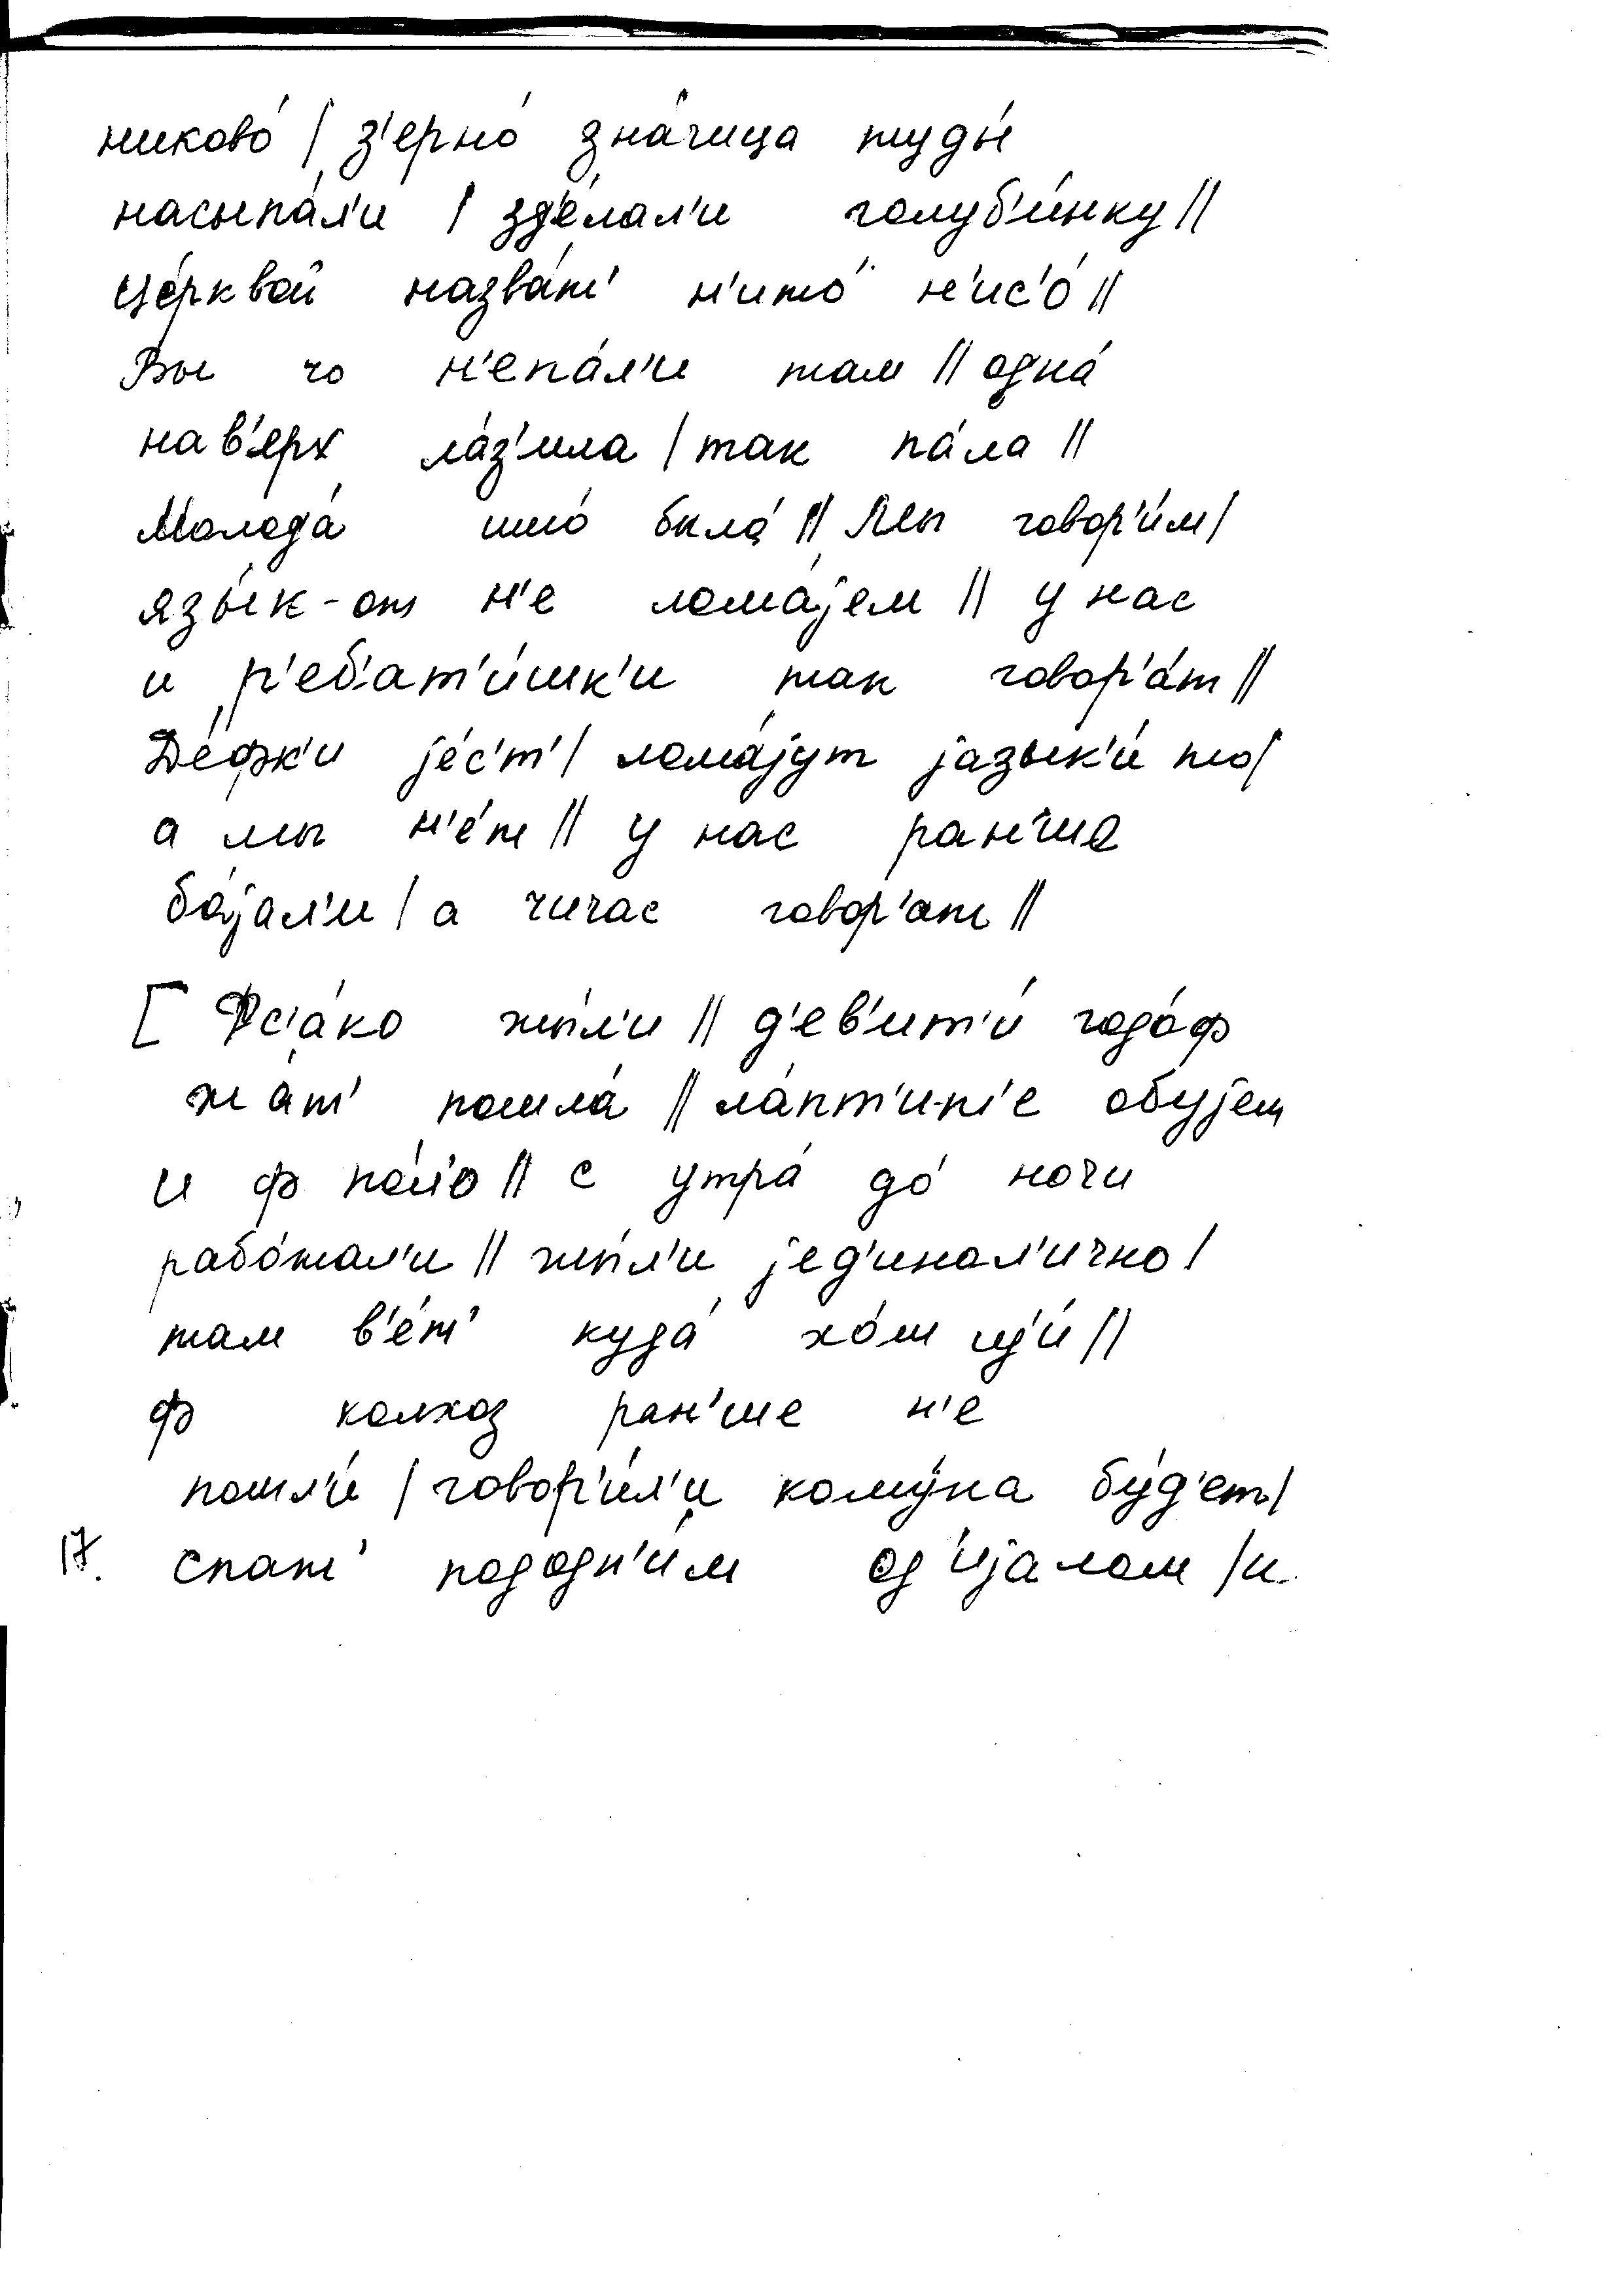 никово́ | з'ерно́ зна́чица туды́
насыпа́л'и | зд'е́лал'и голуб'и́нку ||
це́рквой назва́т' н'ито́ н'ис'о́ ||
Вы чо н'епа́л'и там || одна́
нав'ерх ла́з'ила | так па́ла ||
Молода́ ишо́ была́ || Мы говор'и́м |
язы́к-от н'е лома́jем || у нас
и р'еб'ат'и́шк'и так говор'а́т ||
Де́фк'и jе́с'т' | лома́jут jазык'и́ то |
а мы н'е́т || у нас ран'ше
ба́jал'и | а чичас говор'ат ||
[ Фс'а́ко жы́л'и || д'ев'ит'и́ годо́ф
жа́т' пошла́ || ла́пт'и-т'е обуjеш
и ф по́л'о || с утра́ до́ ночи
рабо́тал'и || жы́л'и jед'инал'ично |
там в'е́т' куда́ хо́ш ид'и́ ||
ф колхоз ран'ше н'е
пошл'и́ | говор'и́л'и кому́на бу́д'ет |
17. спат' пододн'и́м од'иjалом | и